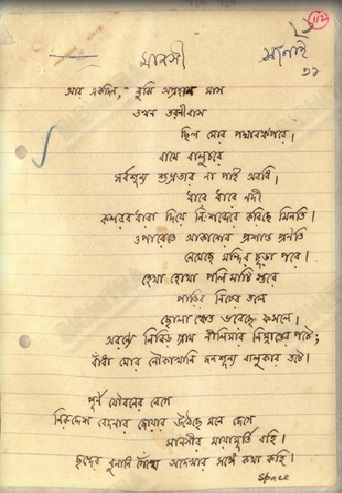 ১১২
মানসী
সানাই
৩৯
আর একদিন, বুঝি অগ্রহায়ণ মাস
তখন তরণীবাস
ছিল মোর পদ্মাবক্ষপরে।
বামে বালুচরে
সর্বশূন্য শুভ্রতার না পাই অবধি।
ধারে ধারে নদী
কলরবধারা দিয়ে নিঃশব্দেরে করিছে মিনতি।
ওপারেতে আকাশের প্রশান্ত প্রণতি
নেমেছে মন্দির চূড়া পরে।
হেথা হোথা পলিমাটি স্তরে
পাড়ির নিচের তলে
ছোলা খেত ভরেছে ফসলে।
অরণ্যে নিবিড় গ্রাম নীলিমার নিম্নান্তের পটে;
বাঁধা মোর নৌকাখানি জনশূন্য বালুকার তটে।
পূর্ণ যৌবনের বেগে
নিরুদ্দেশ বেদনার জোয়ার উঠেছে মনে জেগে
মানসীর মায়ামূর্তি বহি।
ছন্দের বুনানি গেঁথে অদেখার সাথে কথা কহি।
space